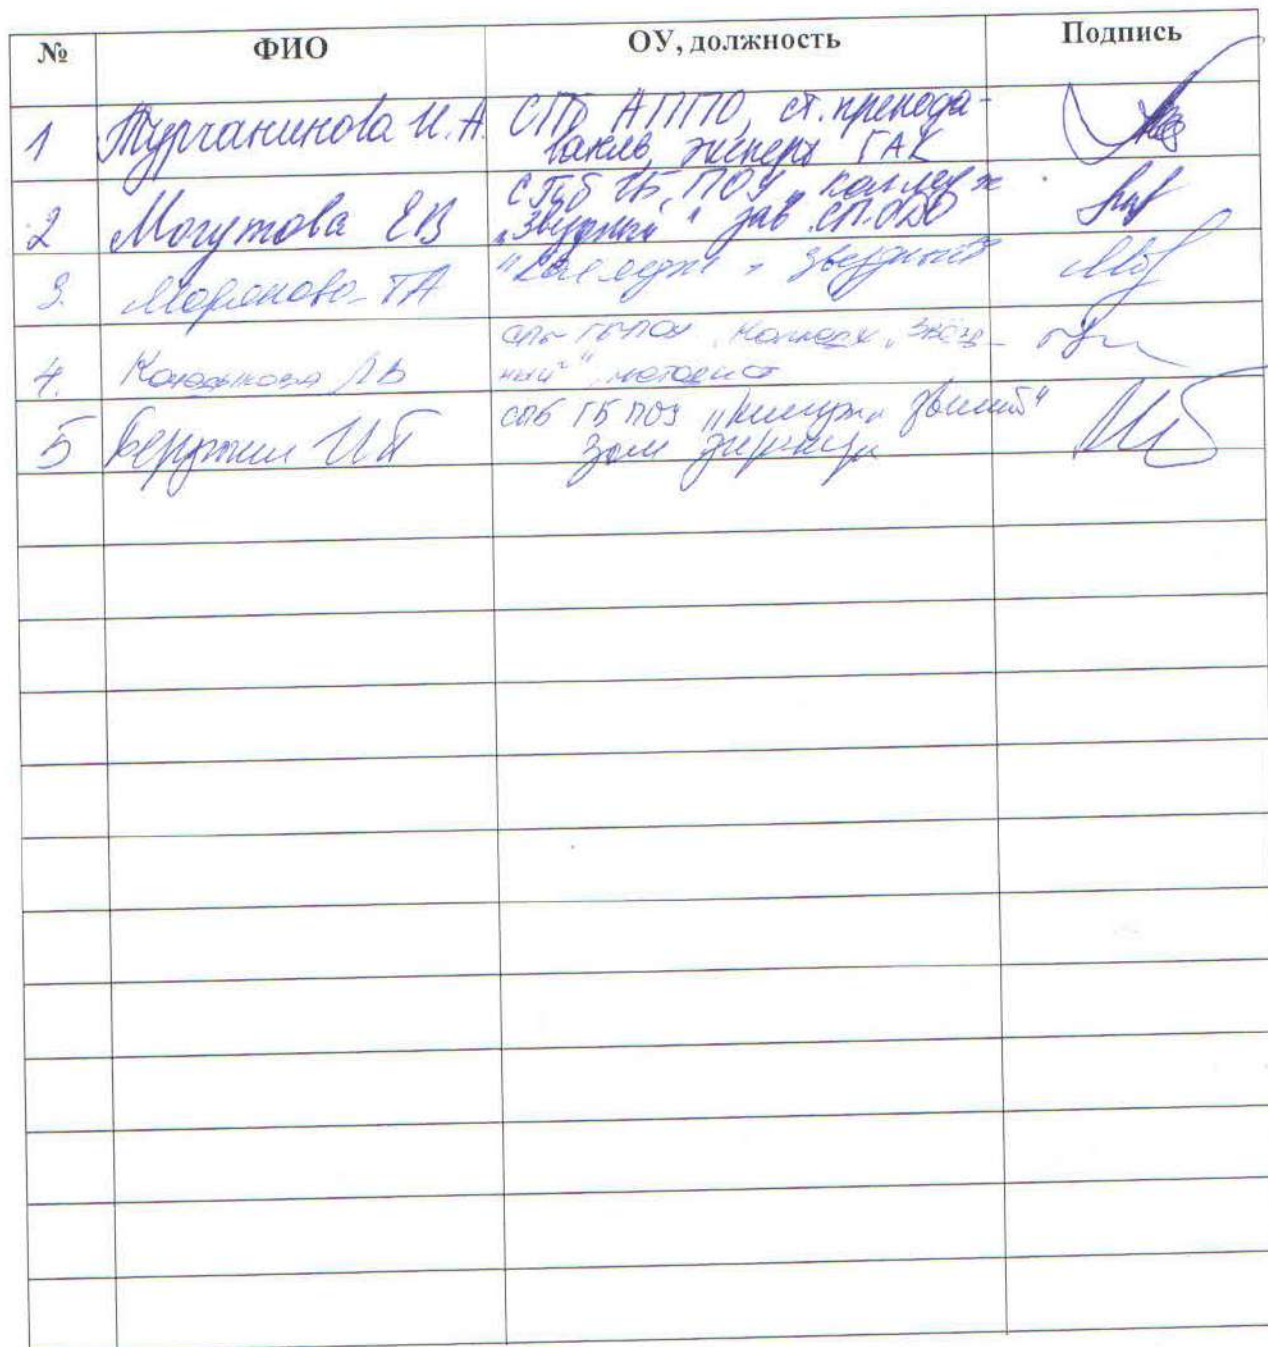 № ФИО ОУ, должность Подпись
1 Турчанинова И.А. СПб АППО, ст. препода-
ватель, эксперт ГАК
2 Могутова ЕВ СПб ГБ ПОУ „Колледж
„Звездный" зав СП ОДО
3. ТА "Колледж „Звездный"
4. ЛВ СПб ГБПОУ „Колледж „Звёзд-
ный" методист
5 СПб ГБ ПОУ „Колледж „Звездный"
зам директора